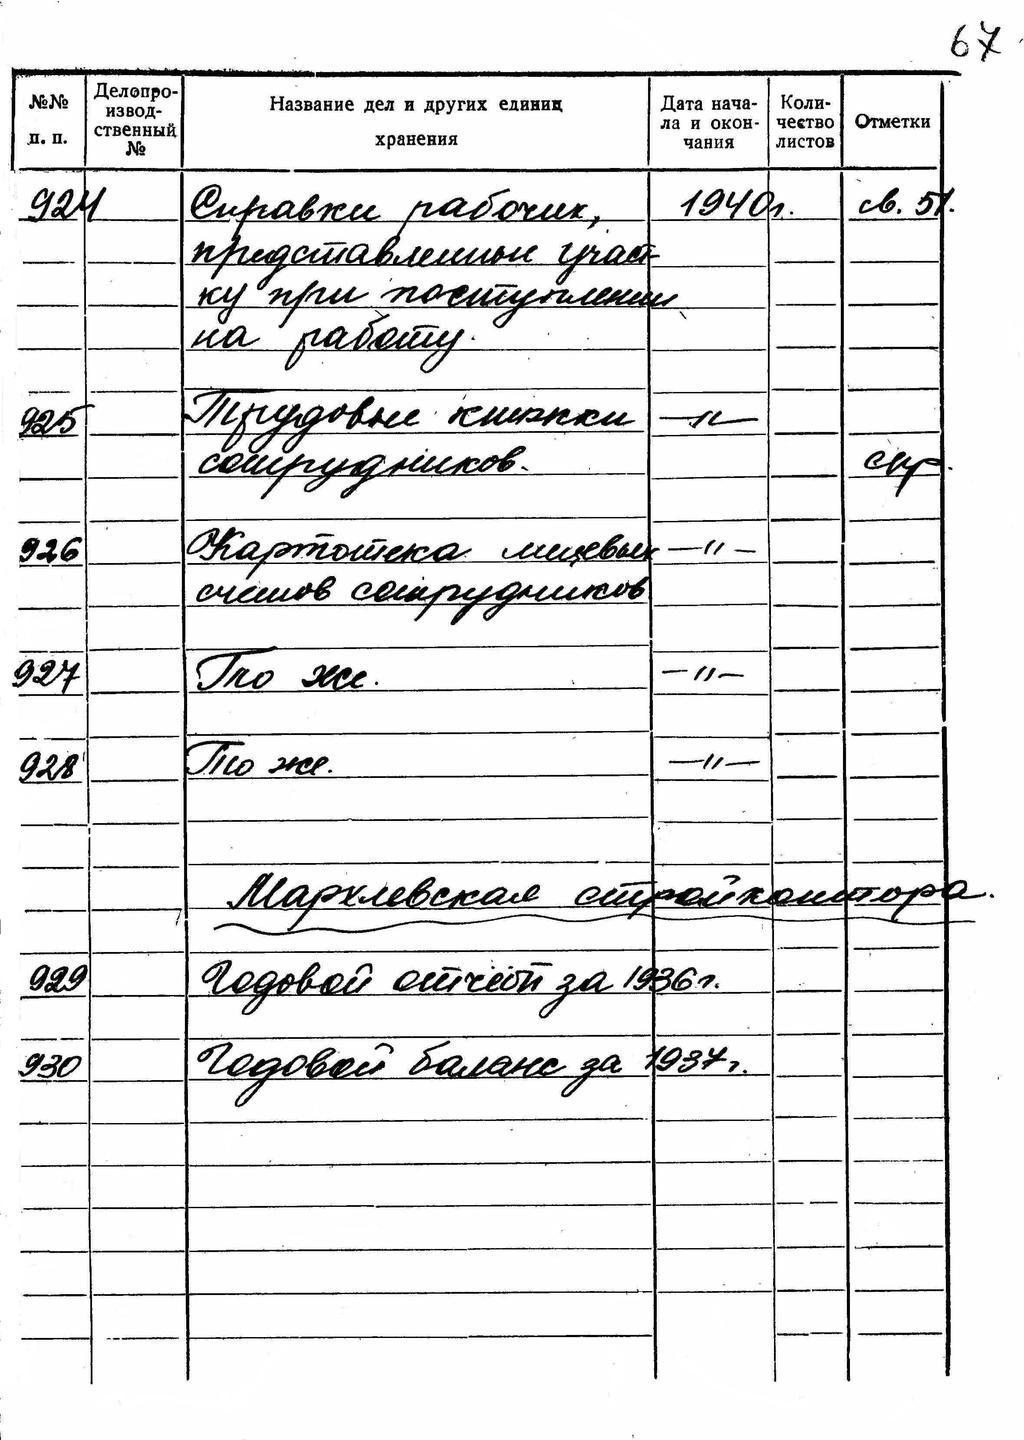 67
№№ п. п.
Делопро-
извод-
ственный
№
Название дел и других единиц
хранения
Дата нача-
ла и окон-
чания
Коли-
чество
листов
Отметки
924 Справки рабочих, 1940г. св. 51.
представленные участ-
ку при поступлении
на работу.
925 Трудовые книжки —"—
сотрудников.
926 Картотека лицевых —"—
счетов сотрудников
927 То же. —"—
928 То же. —"—
Мархлевская стройконтора.
929 Годовой отчёт за 1936г.
930 Годовой баланс за 1937г.